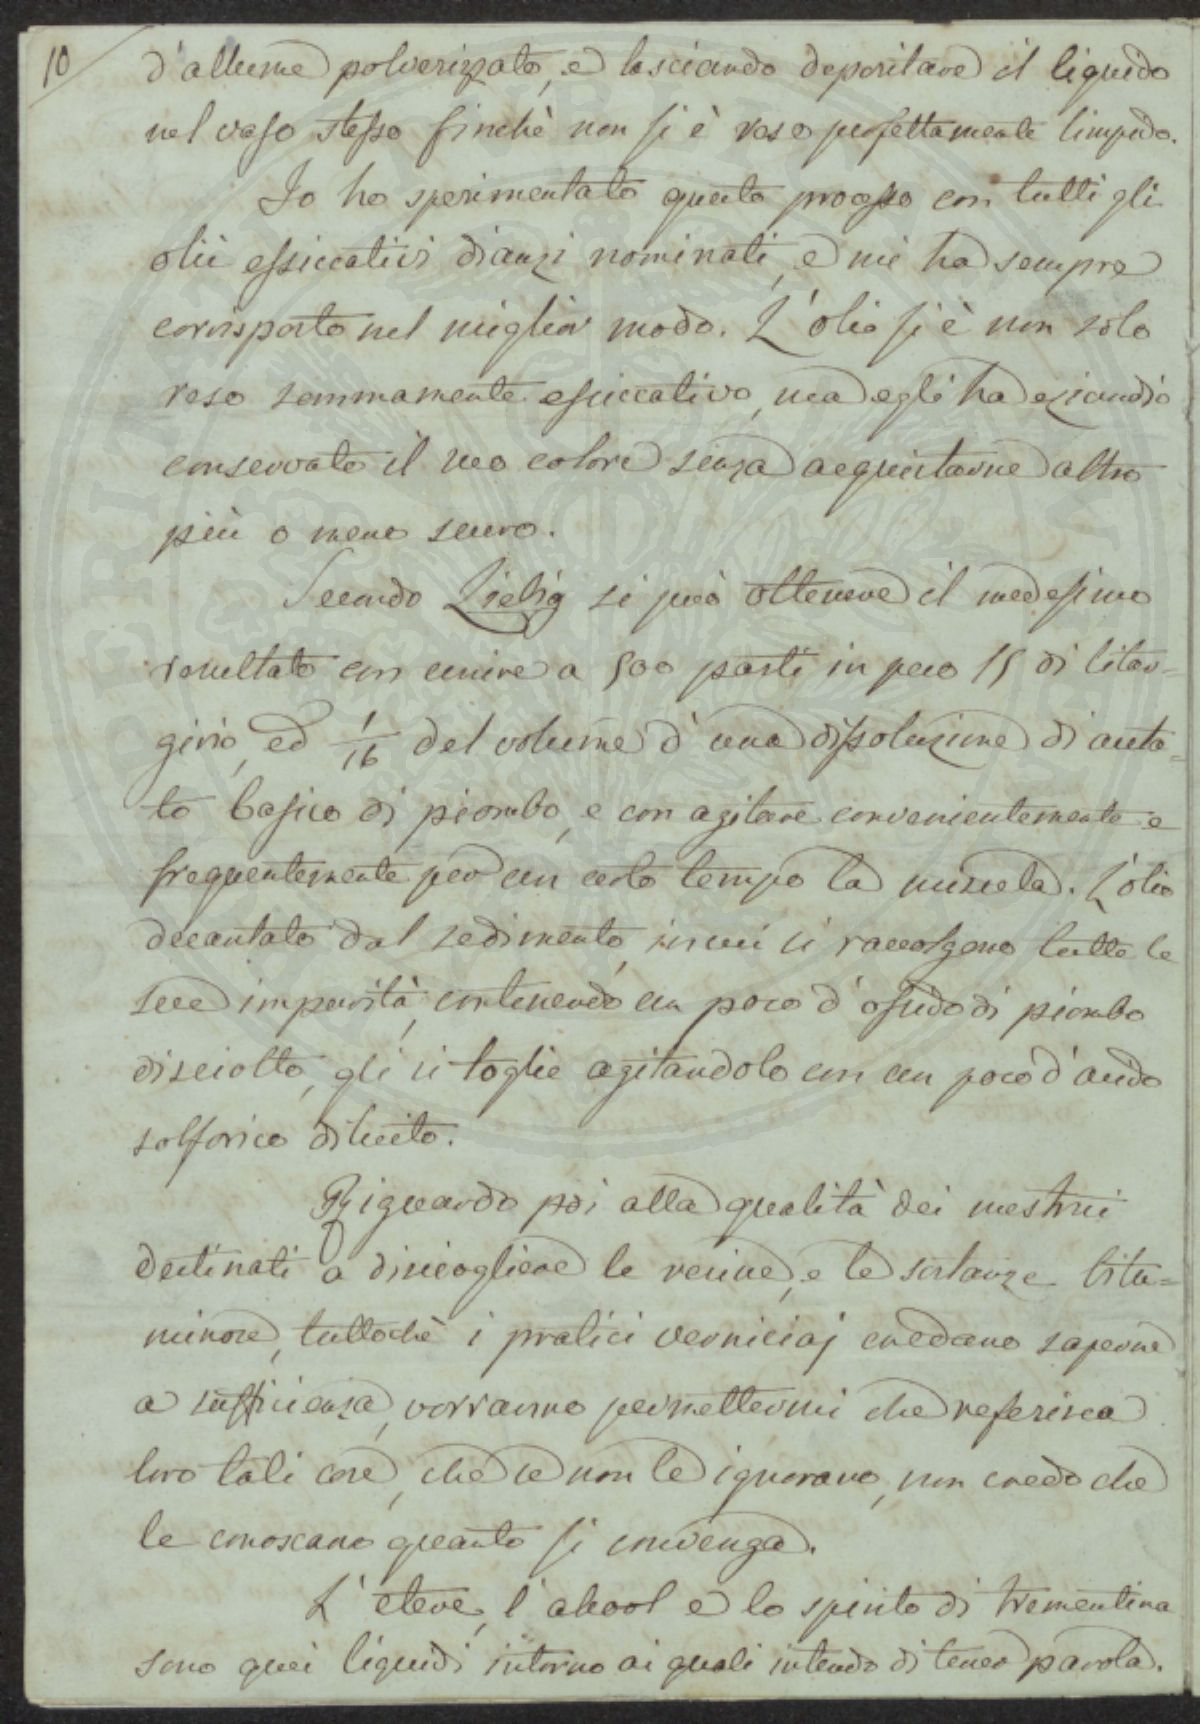 10
d'allume polverizzato, e lasciando depositare il liquido
nel vaso stesso finchè non si è reso perfettamente limpido.
Io ho sperimentato questo processo con tutti gli
olii essiccativi dianzi nominati, e mi ha sempre
corrisposto nel miglior modo. L'olio si è non solo
reso sommamente essiccativo, ma egli ha eziandio
conservato il suo colore senza acquistarne altro
più o meno scuro.
Secondo Liebig si può ottenere il medesimo
resultato con unire a 500 parti in peso 15 di litar=
girio, ed 1/16 del volume d'una dissoluzione di aceta=
to basico di piombo, e con agitare convenientemente e
frequentemente per un certo tempo la miscela. L'olio
decantato dal sedimento, in cui si raccolgono tutte le
sue impurità, contenendo un poco d'ossido di piombo
disciolto, gli si toglie agitandolo con un poco d'acido
solforico diluito.
Riguardo poi alla qualità dei mestrui
destinati a disciogliere le resine, e le sostanze bitu=
minose, tuttochè i pratici verniciaj credano saperne
a sufficienza, vorranno permettermi che referisca
loro tali cose, che se non le ignorano, non credo che
le conoscano quanto si convenga.
L'etere, l'alcool e lo spirito di trementina
sono quei liquidi intorno ai quali intendo di tener parola.